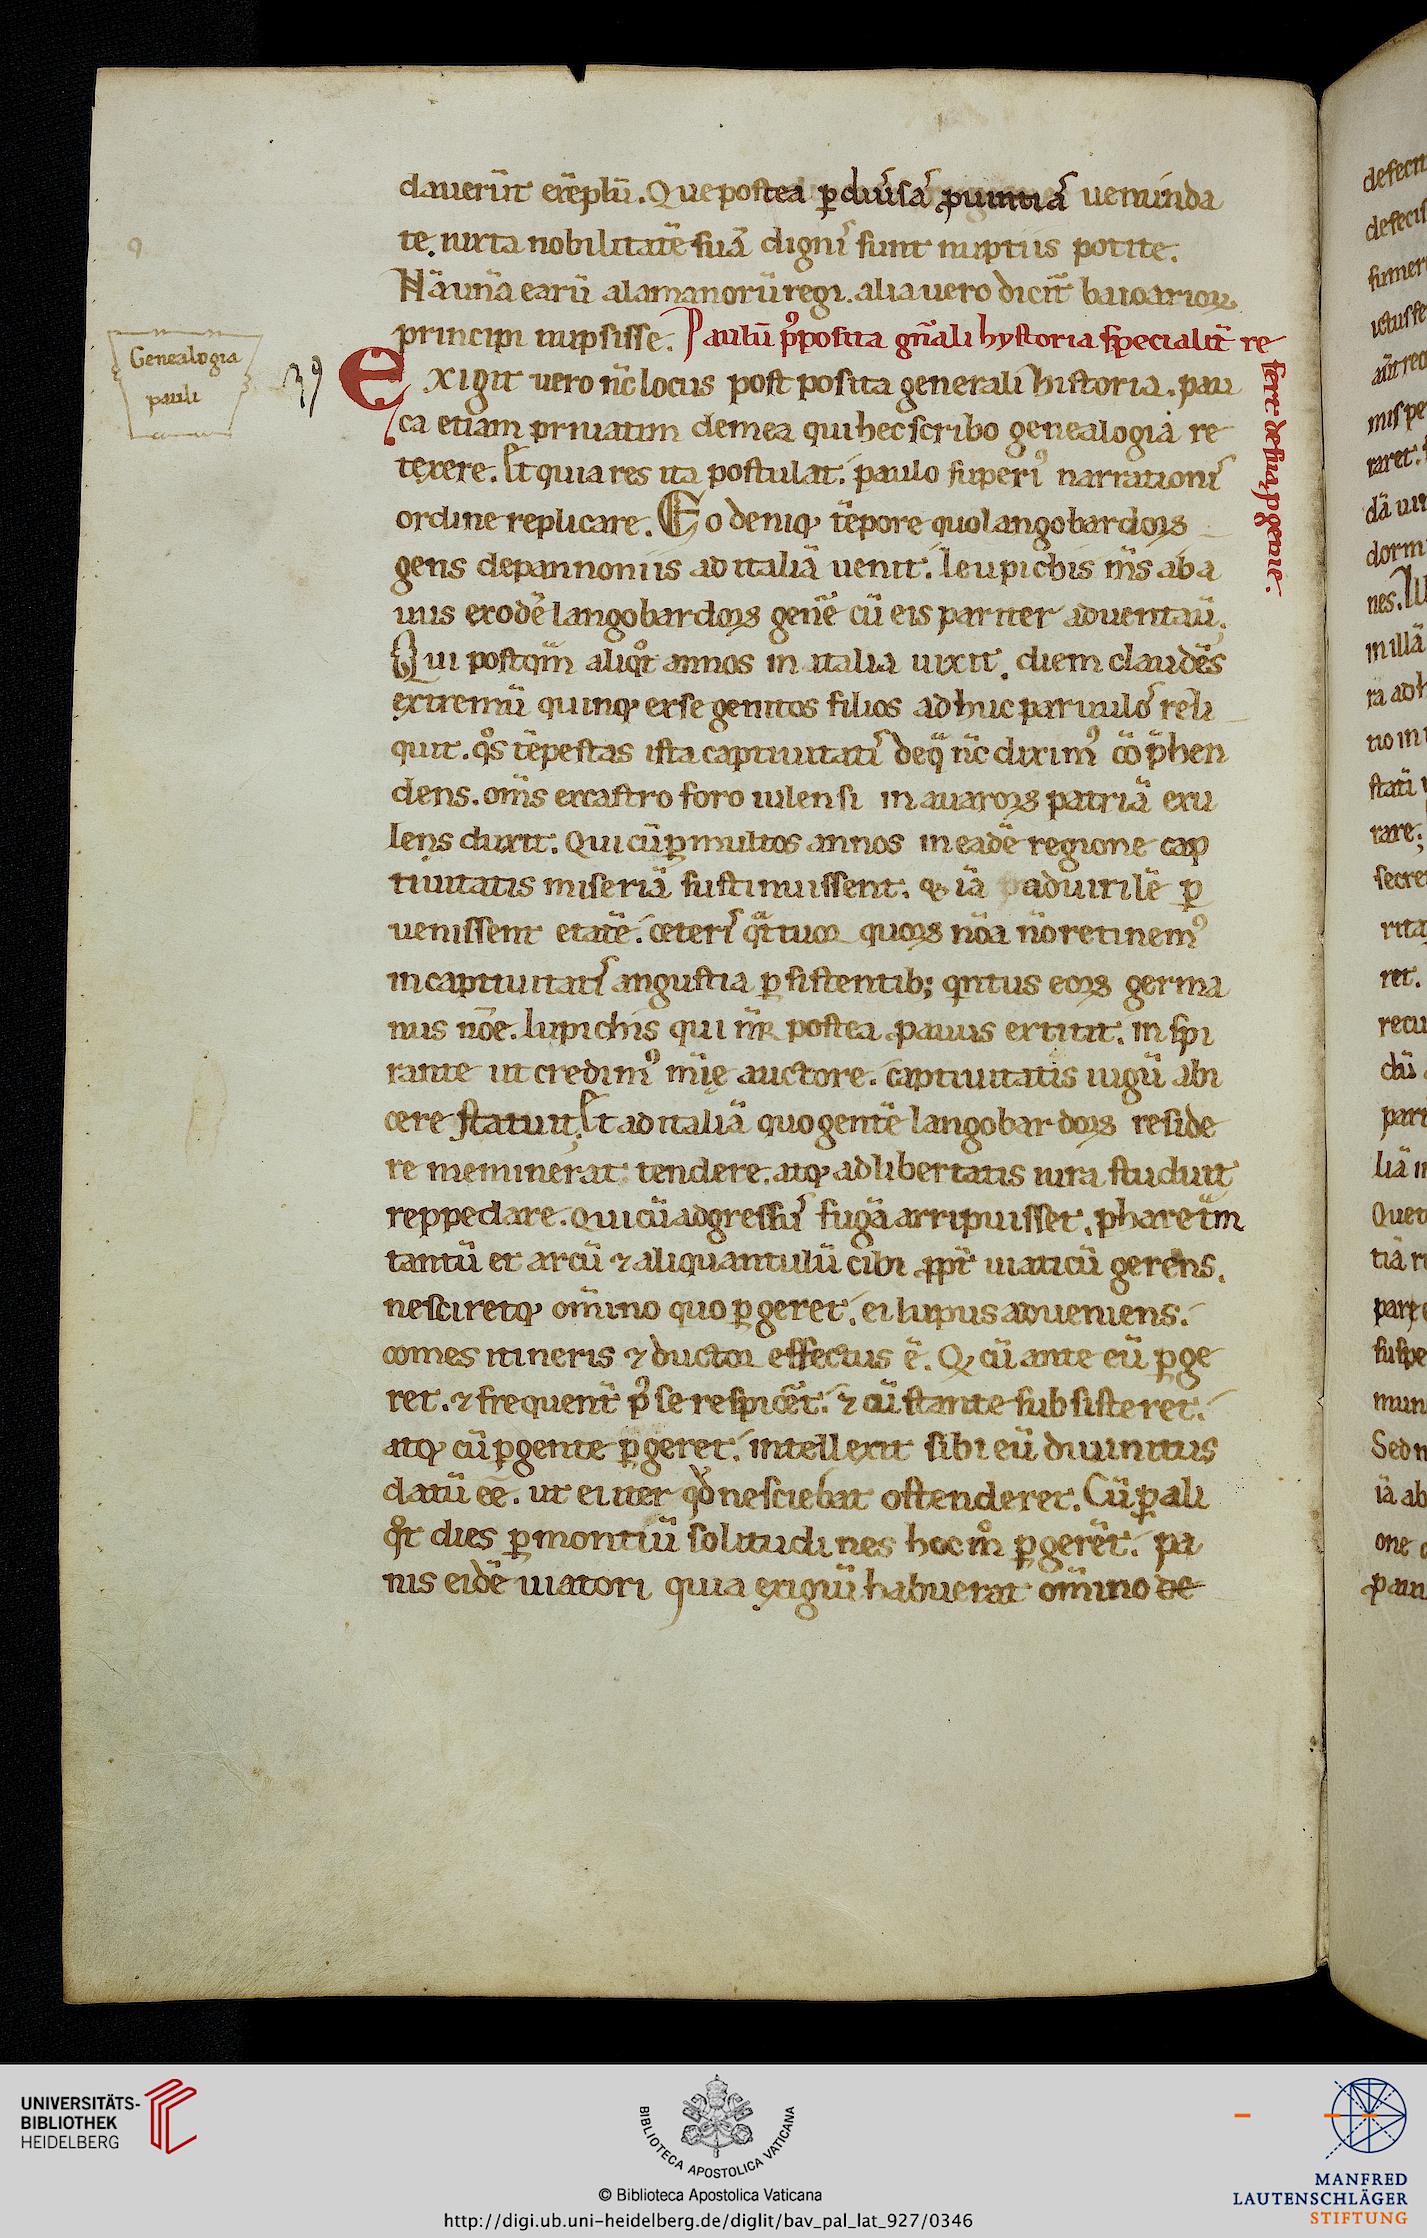 dauerūt exēplū. Que postea ꝑ diuſaſ ꝓuintiaſ uenunda
te. iuxta nobilitatē suā digniſ sunt nuptiis potite.
Nā una earū alamanorū regi. alia uero dicit̄ baioarioꝝ
principi nupsisse. Paulū p̄posita gn̄ali hystoria specialit̄ re
fert de sua ꝓgenie.
Genealogia
pauli
39
Exigit uero nc̄ locus postposita generali historia. pau
ca etiam priuatim de mea qui hec scribo genealogia re
texere. Et quia res ita postulat. paulo superi᾽ narrationiſ
ordine replicare. Eo deniq; tēpore quo langobardoꝝ
gens de pannoniis ad italiā uenit. leupichis m̄s aba
uus ex odē langobardoꝝ gen̄e cū eis pariter aduentau̅.
Qui postqm̄ aliqͦt annos in italia uixit. diem claudēs
extremū quinq; ex se genitos filios adhuc paruuloſ reli
quit. qͦs tēpestas ista captiuitatiſ de q̄ nc̄ dixim᾽ cōp̄hen
dens. om̄s ex castro foroiulensi in auaroꝝ patriā exu
lens duxit. Qui cū ꝑ multos annos in eadē regione cap
tiuitatis miseriā sustinuissent. & iā ad uirilē ꝑ
uenissent etatē. ceteriſ qͣttuor quoꝝ nōa nō retinem᾽
in captiuitatiſ angustia ꝑsistentib; qintus eoꝝ germa
nus nōe. lupichis qui nr̄ postea ꝓauus extitit. inspi
rante ut credim᾽ mīę auctore. captiuitatis iugū abi
cere statuit. Et ad italiā quo gentē langobardoꝝ reside
re meminerat tendere. atq; ad libertatis iura studuit
reppedare. Qui cū adgressuſ fugā arripuisset. pharetm̄
tantū et arcū ⁊ aliquantulū cibi ꝓpt̄ uiaticū gerens.
nesciretq; om̄ino quo ꝑgeret. ei lupus adueniens.
comes itineris ⁊ ductor effectus ē. Q; cū ante eū ꝑge
ret. ⁊ frequent̄ p᾽ se respicēt. ⁊ cū stante subsisteret.
atq; cū ꝑgente ꝑgeret. intellexit sibi eū diuinitus
datū eē. ut ei iter qd̄ nesciebat ostenderet. Cū ꝑ ali
qͦt dies ꝑ montiū solitudines hoc mͦ ꝑgerēt. pa
nis eidē uiatori quia exiguū habuerat om̄ino de
UNIVERSITÄTS-
BIBLIOTHEK
HEIDELBERG
BIBLIOTECA APOSTOLICA VATICANA
© Biblioteca Apostolica Vaticana
http://digi.ub.uni-heidelberg.de/diglit/bav_pal_lat_927/0346
MANFRED
LAUTENSCHLÄGER
STIFTUNG